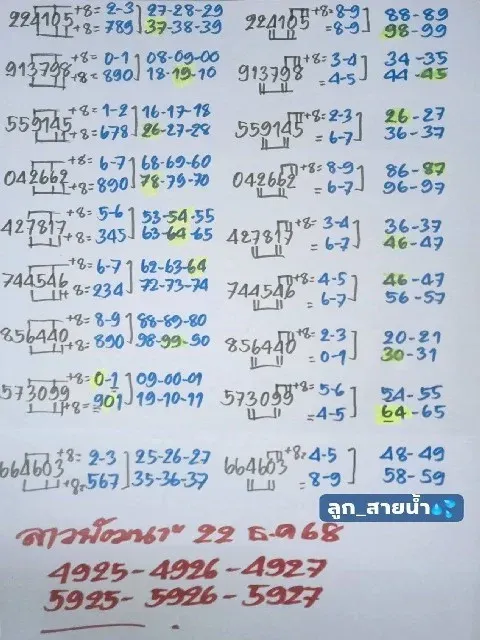 224105 +8= 2-3 27-28-29
+8= 789 37-38-39
913798 +8= 0-1 08-09-00
+8= 890 18-19-10
559145 +8= 1-2 16-17-18
+8= 678 26-27-28
042662 +8= 6-7 68-69-60
+8= 890 78-79-70
427817 +8= 5-6 53-54-55
+8= 345 63-64-65
744546 +8= 6-7 62-63-64
+8= 234 72-73-74
856440 +8= 8-9 88-89-80
+8= 890 98-99-90
573099 +8= 0-1 09-00-01
+8= 901 19-10-11
664603 +8= 2-3 25-26-27
+8= 567 35-36-37
224105 +8= 8-9 88-89
=8-9 98-99
913798 +8= 3-4 34-35
= 4-5 44-45
559145 +8= 2-3 26-27
= 6-7 36-37
042662 +8= 8-9 86-87
= 6-7 96-97
427817 +8= 3-4 36-37
= 6-7 46-47
744546 +8= 4-5 46-47
= 6-7 56-57
856440 +8= 2-3 20-21
= 0-1 30-31
573099 +8= 5-6 54-55
= 4-5 64-65
664603 +8= 4-5 48-49
= 8-9 58-59
ลูก_สายน้ำ💦
ลาวพัฒนา 22 ธ.ค 68
4925-4926-4927
5925-5926-5927